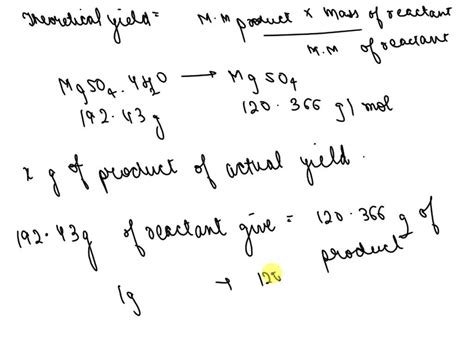 Theoretical yield = M.M product x mass of reactant
M.M of reactant
MgSO4.4H2O → MgSO4
192.43 g 120.366 g/mol
x g of product of actual yield.
192.43g of reactant give = 120.366 g of
product
1g → 12